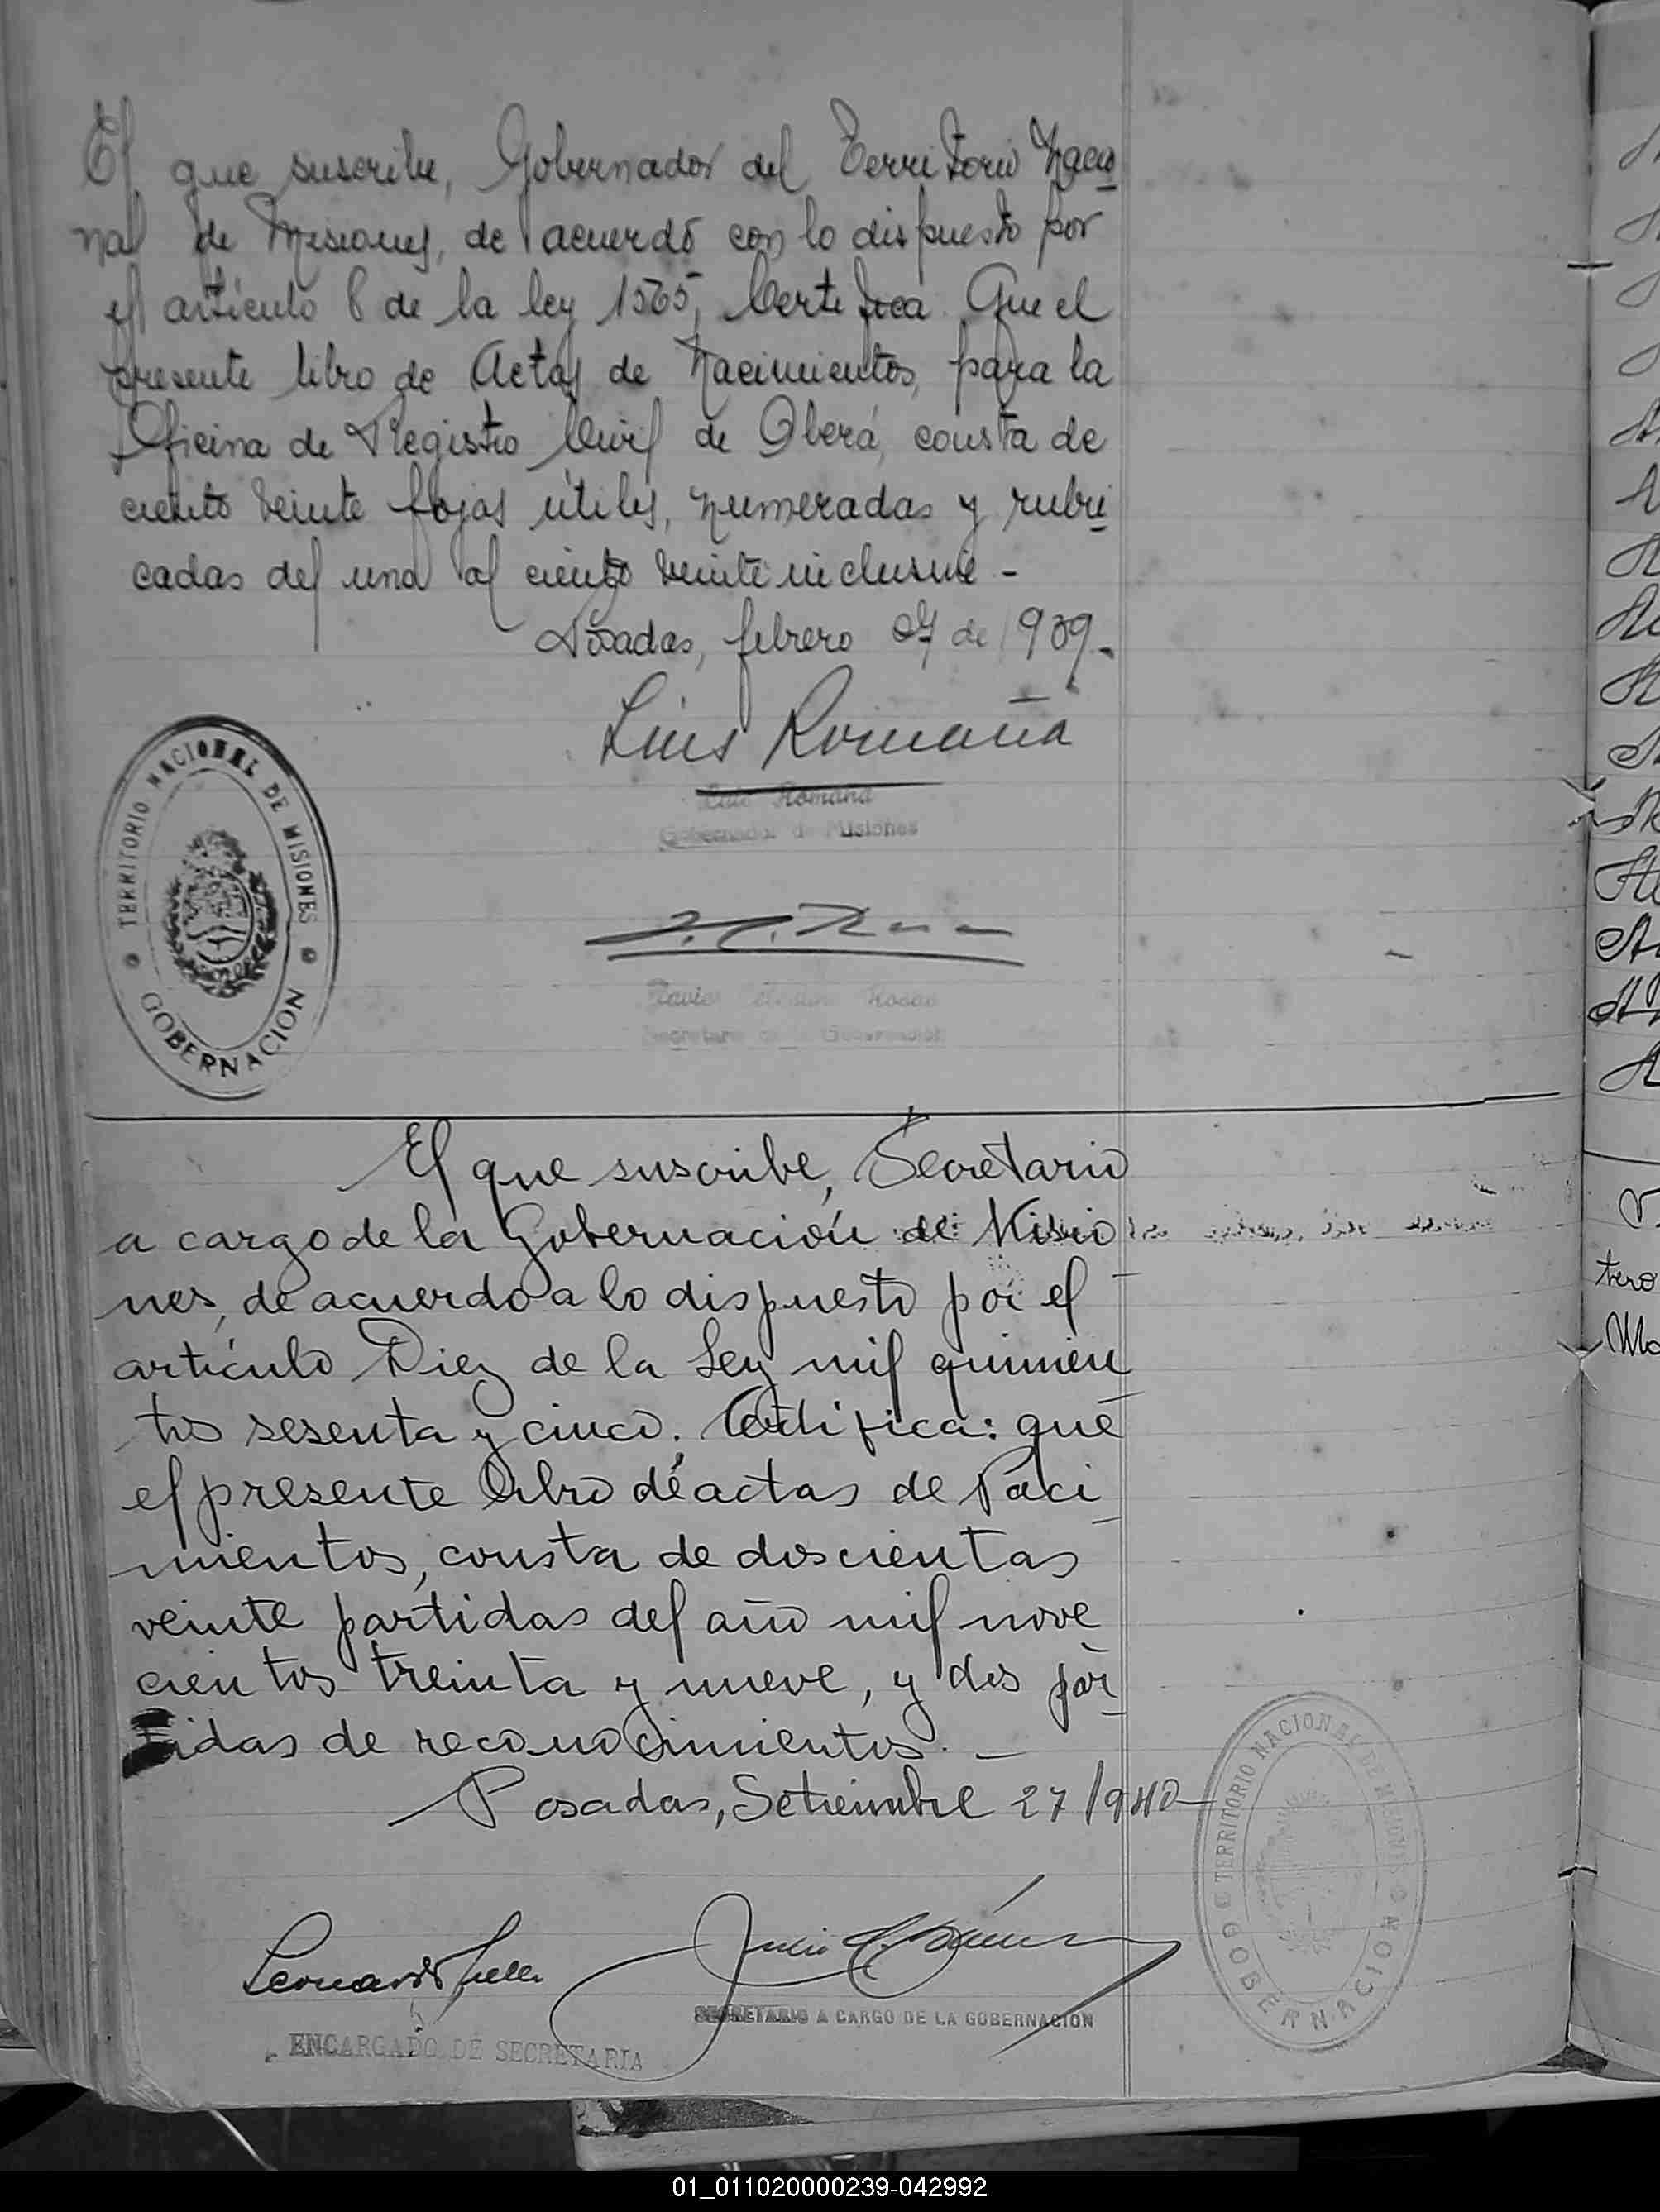 El que suscribe, Gobernador del Territorio Nacio
nal de Misiones, de acuerdo con lo dispuesto por
el artículo 8 de la ley 1565, Certifica Que el
presente libro de Actas de Nacimientos, para la
Oficina de Registro Civil de Oberá, consta de
ciento veinte fojas útiles, numeradas y rubri
cadas del una al ciento veinte inclusive -
Posadas, febrero de 1939.-
Luis Romaña
Luis Romaña
Gobernador de Misiones
TERRITORIO NACIONAL DE MISIONES
GOBERNACION
Secretario de la Gobernación
El que suscribe, Secretario
a cargo de la Gobernación de Misio
nes, de acuerdo a lo dispuesto por el
artículo Diez de la Ley mil quinien
tos sesenta y cinco. Certifica: que
el presente libro de actas de Naci
mientos, consta de doscientas
veinte partidas del año mil nove
cientos treinta y nueve, y dos par
tidas de reconocimientos. -
Posadas, Setiembre 27/940-
TERRITORIO NACIONAL DE MISIONES
GOBERNACION
Leonardo
Julio
SECRETARIO A CARGO DE LA GOBERNACION
ENCARGADO DE SECRETARIA
01_011020000239-042992